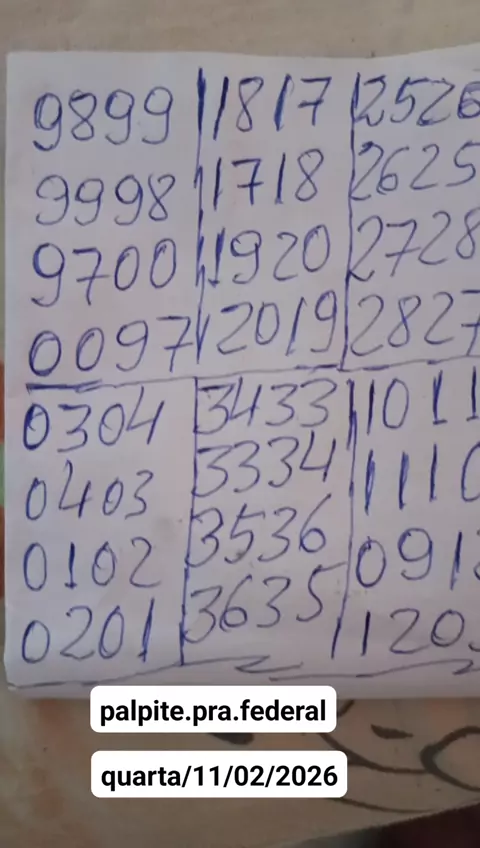 9899 1817 2526
9998 1718 2625
9700 1920 2728
0097 2019 2827
0304 3433 1011
0403 3334 1110
0102 3536 091
0201 3635 120
palpite.pra.federal
quarta/11/02/2026